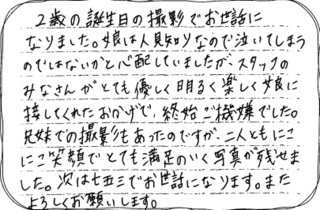 2歳の誕生日の撮影でお世話に
なりました。娘は人見知りなので泣いてしまう
のではないかと心配していましたが、スタッフの
みなさんがとても優しく明るく楽しく娘に
接してくれたおかげで、終始ご機嫌でした。
兄妹での撮影もあったのですが、二人ともにこ
にこ笑顔でとても満足のいく写真が残せま
した。次は七五三でお世話になります。また
よろしくお願いします。